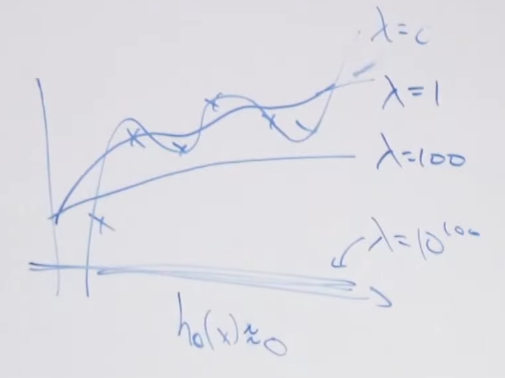 λ=0
λ=1
λ=100
λ=10^100
hθ(x)≈0